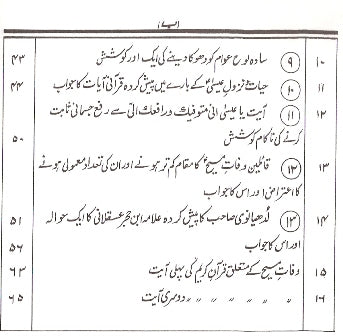 (ب)
۱۰ ⑨ سادہ لوح عوام کو دھوکا دینے کی ایک اور کوشش ۴۳
۱۱ ⑩ حیات و نزولِ عیسیٰؑ کے بارے میں پیش کردہ قرآنی آیات کا جواب ۴۴
۱۲ ⑪ آیت یا عیسیٰ انی متوفیک ورافعک الیّ سے رفع جسمانی ثابت
کرنے کی ناکام کوشش ۵۰
۱۳ ⑫ قائلین وفاتِ مسیحؑ کا مقام کم تر ہونے اور ان کی تعداد معمولی ہونے
کا اعتراض اور اس کا جواب ۵۱
۱۴ ⑬ لُدھیانوی صاحب کا پیش کردہ علامہ ابن حجر عسقلانی کا ایک حوالہ
اور اس کا جواب ۵۶
۱۵ وفاتِ مسیح کے متعلق قرآن کریم کی پہلی آیت ۶۳
۱۶ " " " " " " دوسری آیت ۶۵